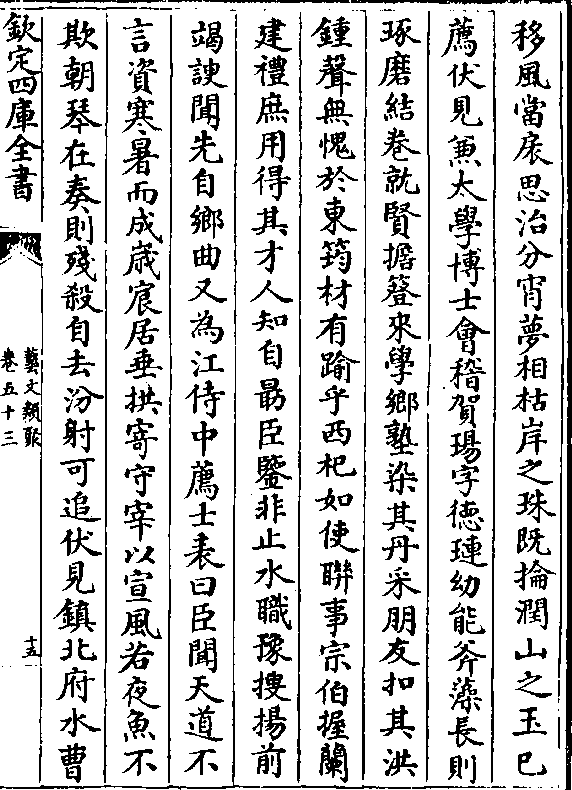 移風當扆思治分宵夢相枯岸之珠既掄潤山之玉已
薦伏見兼太學博士會稽賀瑒字徳璉幼能斧藻長則
琢磨結卷就賢擔簦來學鄉塾染其丹采朋友扣其洪
鍾聲無愧於東筠材有踰乎西杞如使聨事宗伯握蘭
建禮庶用得其才人知自勗臣鑒非止水職豫搜揚前
竭諛聞先自鄉曲又為江侍中薦士表曰臣聞天道不
言資寒暑而成歳宸居垂拱寄守宰以宣風若夜魚不
欺朝琴在奏則殘殺自去汾射可追伏見鎮北府水曹
欽定四庫全書
藝文類聚
卷五十三
十五